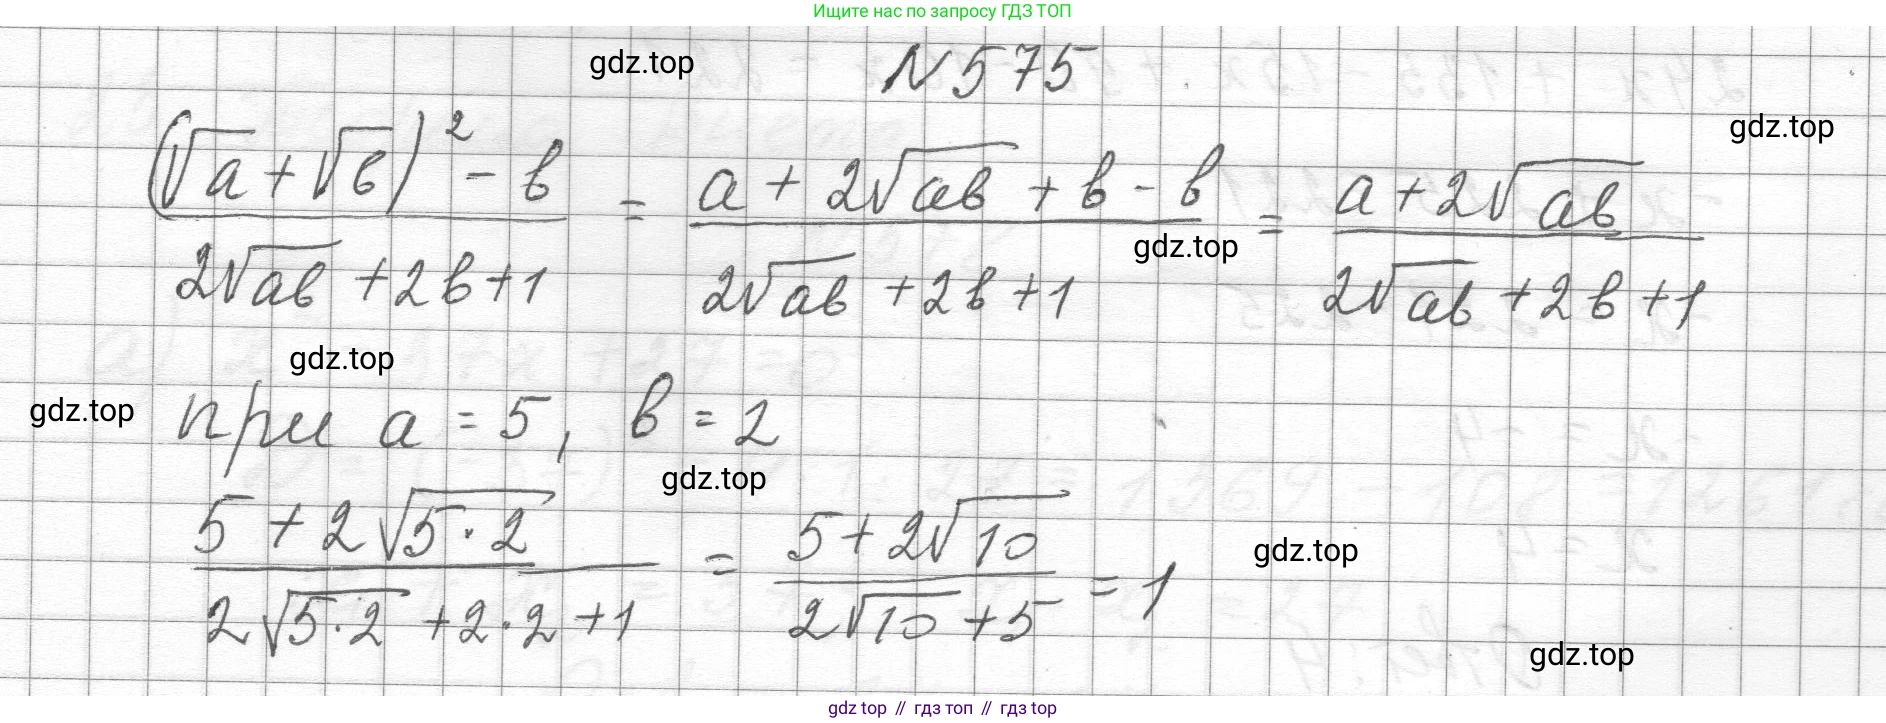 Ищите нас по запросу ГДЗ ТОП
gdz.top
№575
gdz.top
(√a+√b)² - b / 2√ab + 2b + 1 = a + 2√ab + b - b / 2√ab + 2b + 1 = a + 2√ab / 2√ab + 2b + 1
gdz.top
gdz.top
gdz.top
при a = 5, b = 2
gdz.top
5 + 2√5·2 / 2√5·2 + 2·2 + 1 = 5 + 2√10 / 2√10 + 5 = 1
gdz.top
gdz.top
gdz top // гдз топ // гдз top